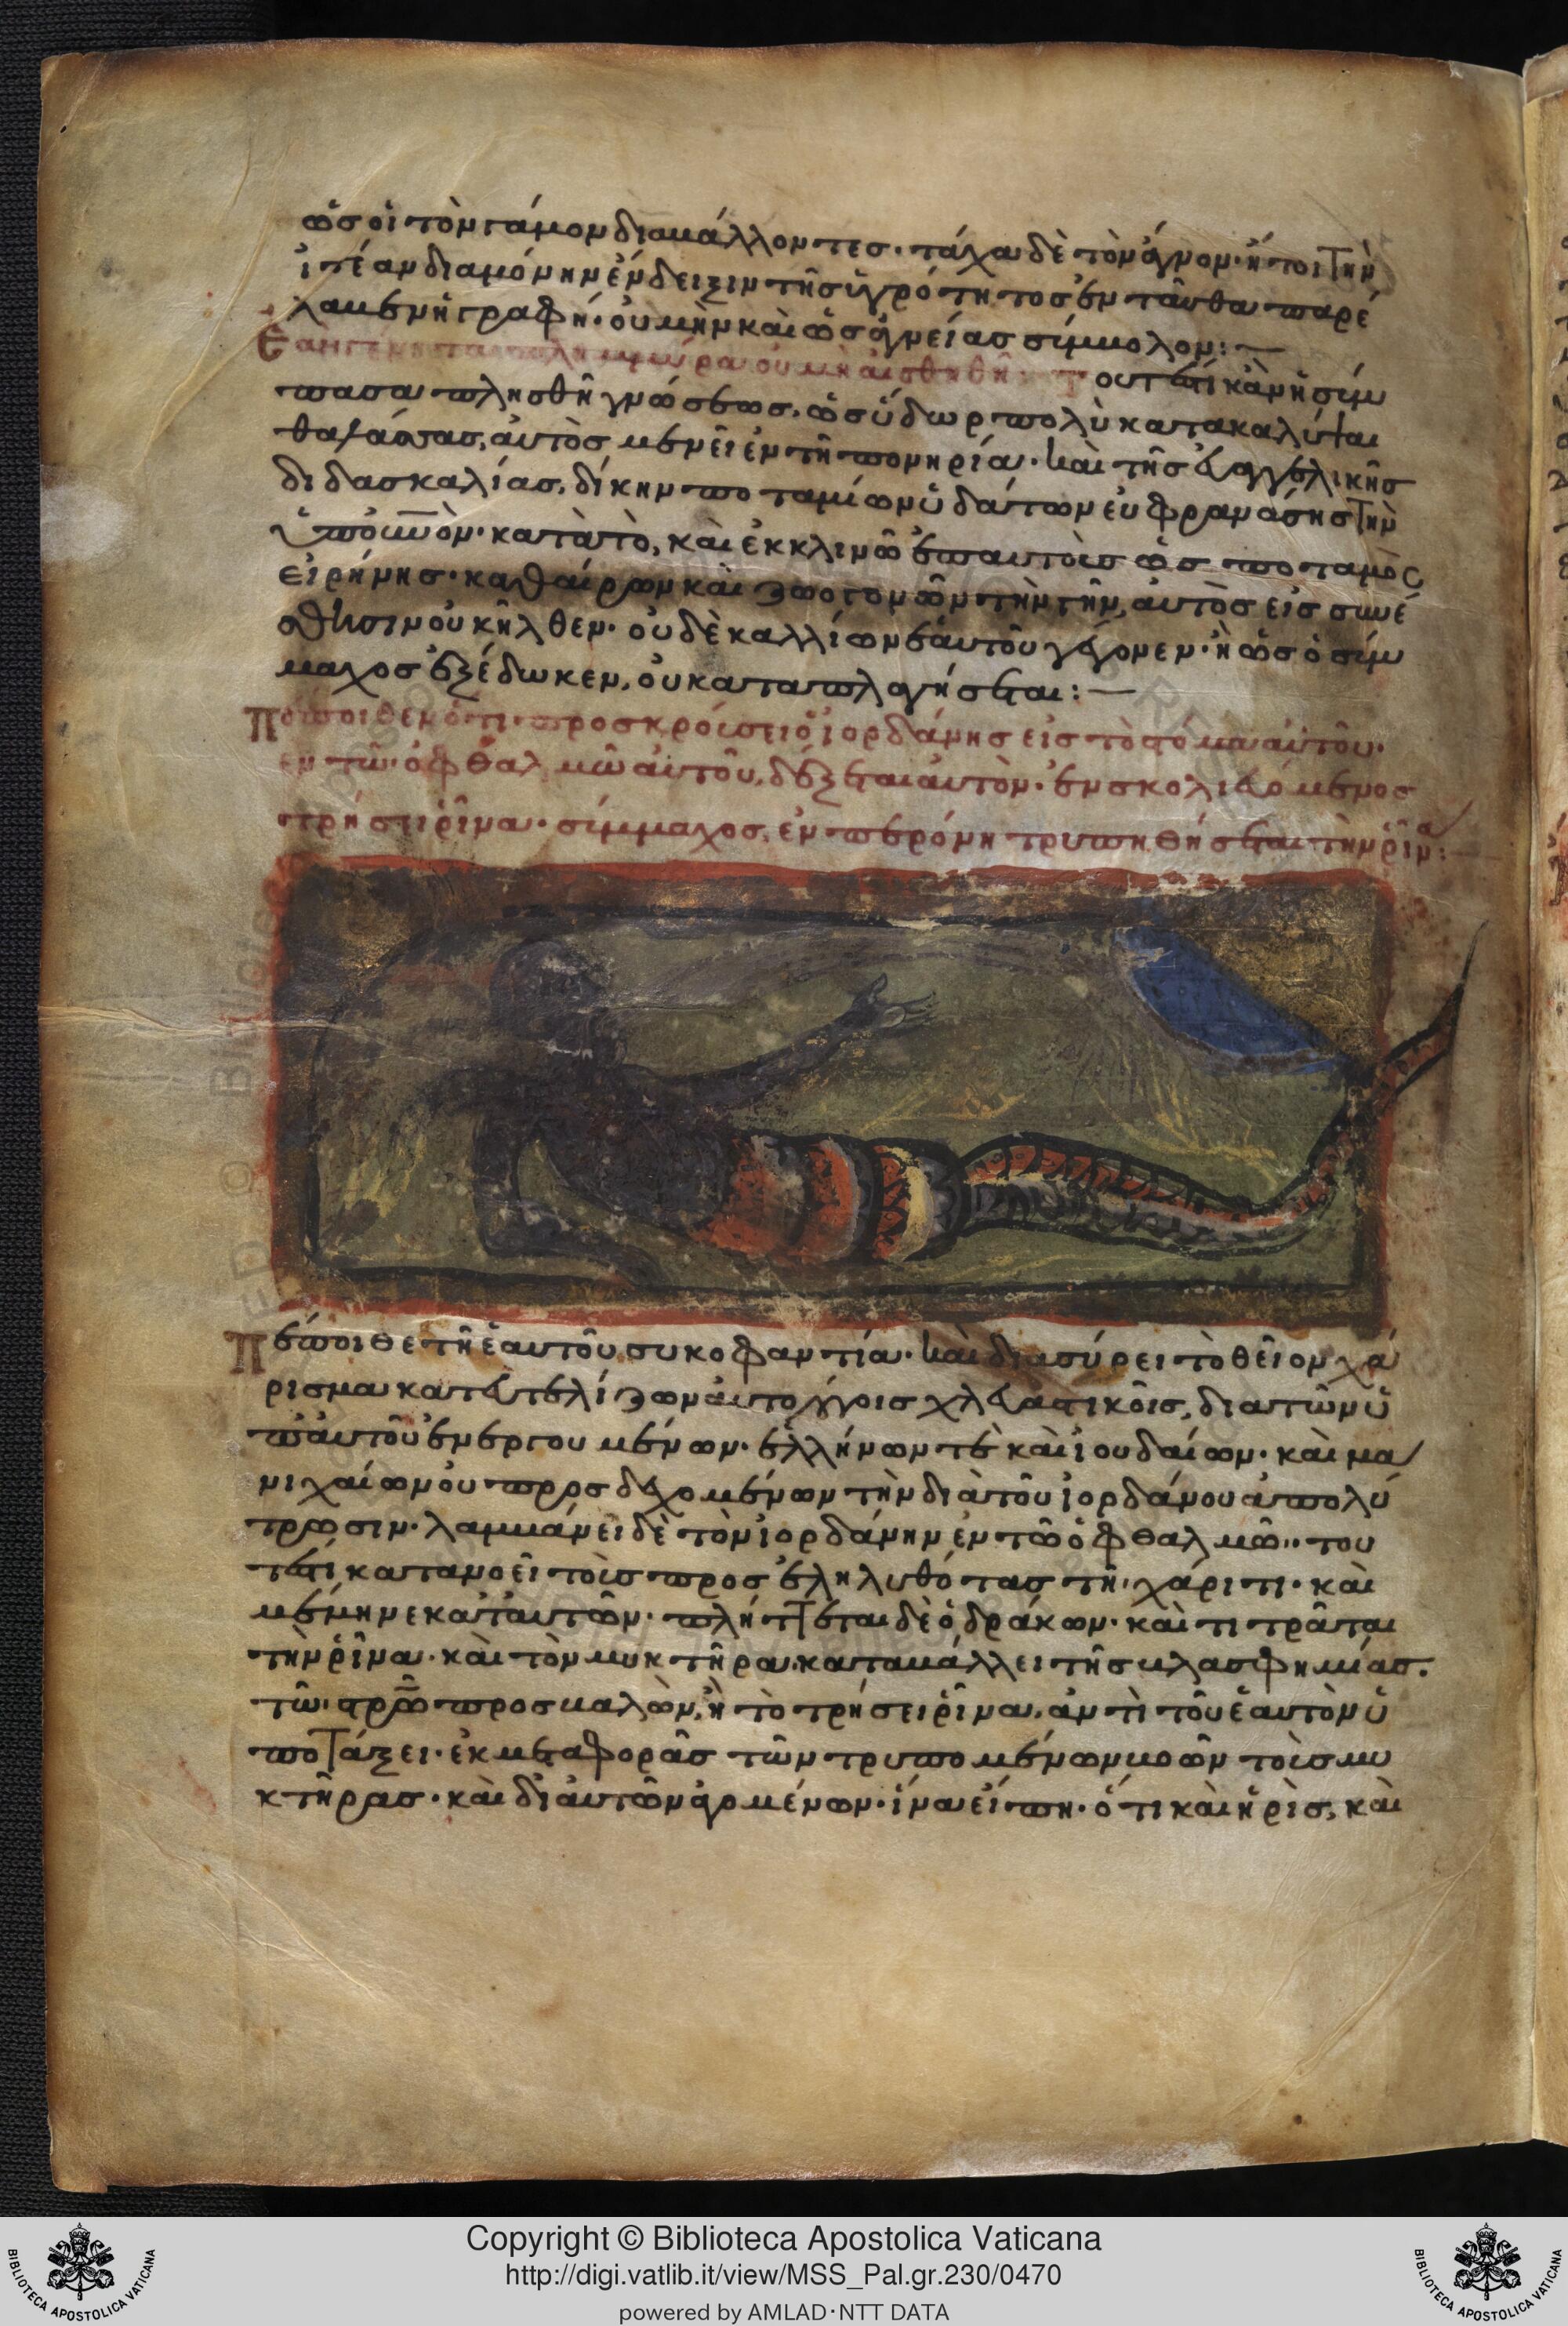 ὡσ οἱ τὸν γάμον διαβάλλοντεσ· τάχα δὲ τὸν ἄγνον· ἤτοι τὴν
ἰτέαν διαμόνην ἔνδειξιν τῆσ ὑγρότητοσ ἐνταῦθα παρέ
λαβεν ἡ γραφή· οὐ μὴν καὶ ὡσ ἁγνείασ σύμβολον:
Ἐὰν γένηται πλημμύρα οὐ μὴ αἰσθηθῆ: τουτέστι κἂν ἡ σύμ
πασα πλησθῆ γνώσεωσ, ὡσ ὕδωρ πολὺ κατακαλύψαι
θαλάσσασ, αὐτὸσ μενεῖ ἐν τῆ πονηρία· καὶ τῆσ εὐαγγελικῆσ
διδασκαλίασ, δίκην ποταμίων ὑδάτων εὐφρανάσησ τὴν
ὑπ οὐνὸν· κατὰ τὸ, καὶ ἐκκλινῶ ἐπ αὐτοὺσ ὡσ ποταμὸσ
εἰρήνησ· καθαίρων καὶ ζωογονῶν τὴν γῆν, αὐτὸσ εἰσ συνέ
σθησιν οὐκ ἦλθεν· οὐδὲ καλλίων ἑαυτοῦ γέγονεν· ἢ ὡσ ὁ σύμ
μαχοσ ἐξέδωκεν, οὐ καταπλαγήσεται:
Πέποιθεν ὅτι προσκρούσει ὁ ἰορδάνησ εἰσ τὸ στόμα αὐτοῦ·
ἐν τῶ ὀφθαλμῶ αὐτοῦ, δέξεται αὐτὸν· ἐνσκολιευόμενοσ
τρήσει ῥῖνα· σύμμαχοσ, ἐν περόνη τρυπηθήσεται τὴν ῥῖνα:
Πέποιθε τῆ ἑαυτοῦ συκοφαντία· καὶ διασύρει τὸ θεῖον χά
ρισμα κατευτελίζων αὐτὸ λόγοισ χλευαστικοῖσ, διὰ τῶν ὑ
π αὐτοῦ ἐνεργουμένων· ἑλλήνων τὲ καὶ ἰουδαίων· καὶ μα
νιχαίων οὐ προσδεχομένων τὴν διὰ τοῦ ἰορδάνου ἀπολύ
τρωσιν· λαμβάνει δὲ τὸν ἰορδάνην ἐν τῶ ὀφθαλμῶ·· του
τέστι κατανοεῖ τοὺσ προσεληλυθότασ τῆ χάριτι· καὶ
μέμηνε κατ αὐτῶν· πλήττεται δὲ ὁ δράκων· καὶ τιτρᾶται
τὴν ῥῖνα· καὶ τὸν μυκτῆρα καταβάλλει τῆσ βλασφημίασ.
τῶ στρῶ προσβαλὼν, ἢ τὸ τρήσει ῥῖνα, ἀντὶ τοῦ ἑαυτὸν ὑ
ποτάξει· ἐκ μεταφορᾶσ τῶν τρυπομένων βοῶν τοὺσ μυ
κτῆρασ· καὶ δι αὐτῶν ἀγομένων· ἵνα εἴπη· ὅτι καὶ ἡ ρὶσ, καὶ
Copyright © Biblioteca Apostolica Vaticana
http://digi.vatlib.it/view/MSS_Pal.gr.230/0470
powered by AMLAD·NTT DATA
BIBLIOTECA APOSTOLICA VATICANA
BIBLIOTECA APOSTOLICA VATICANA